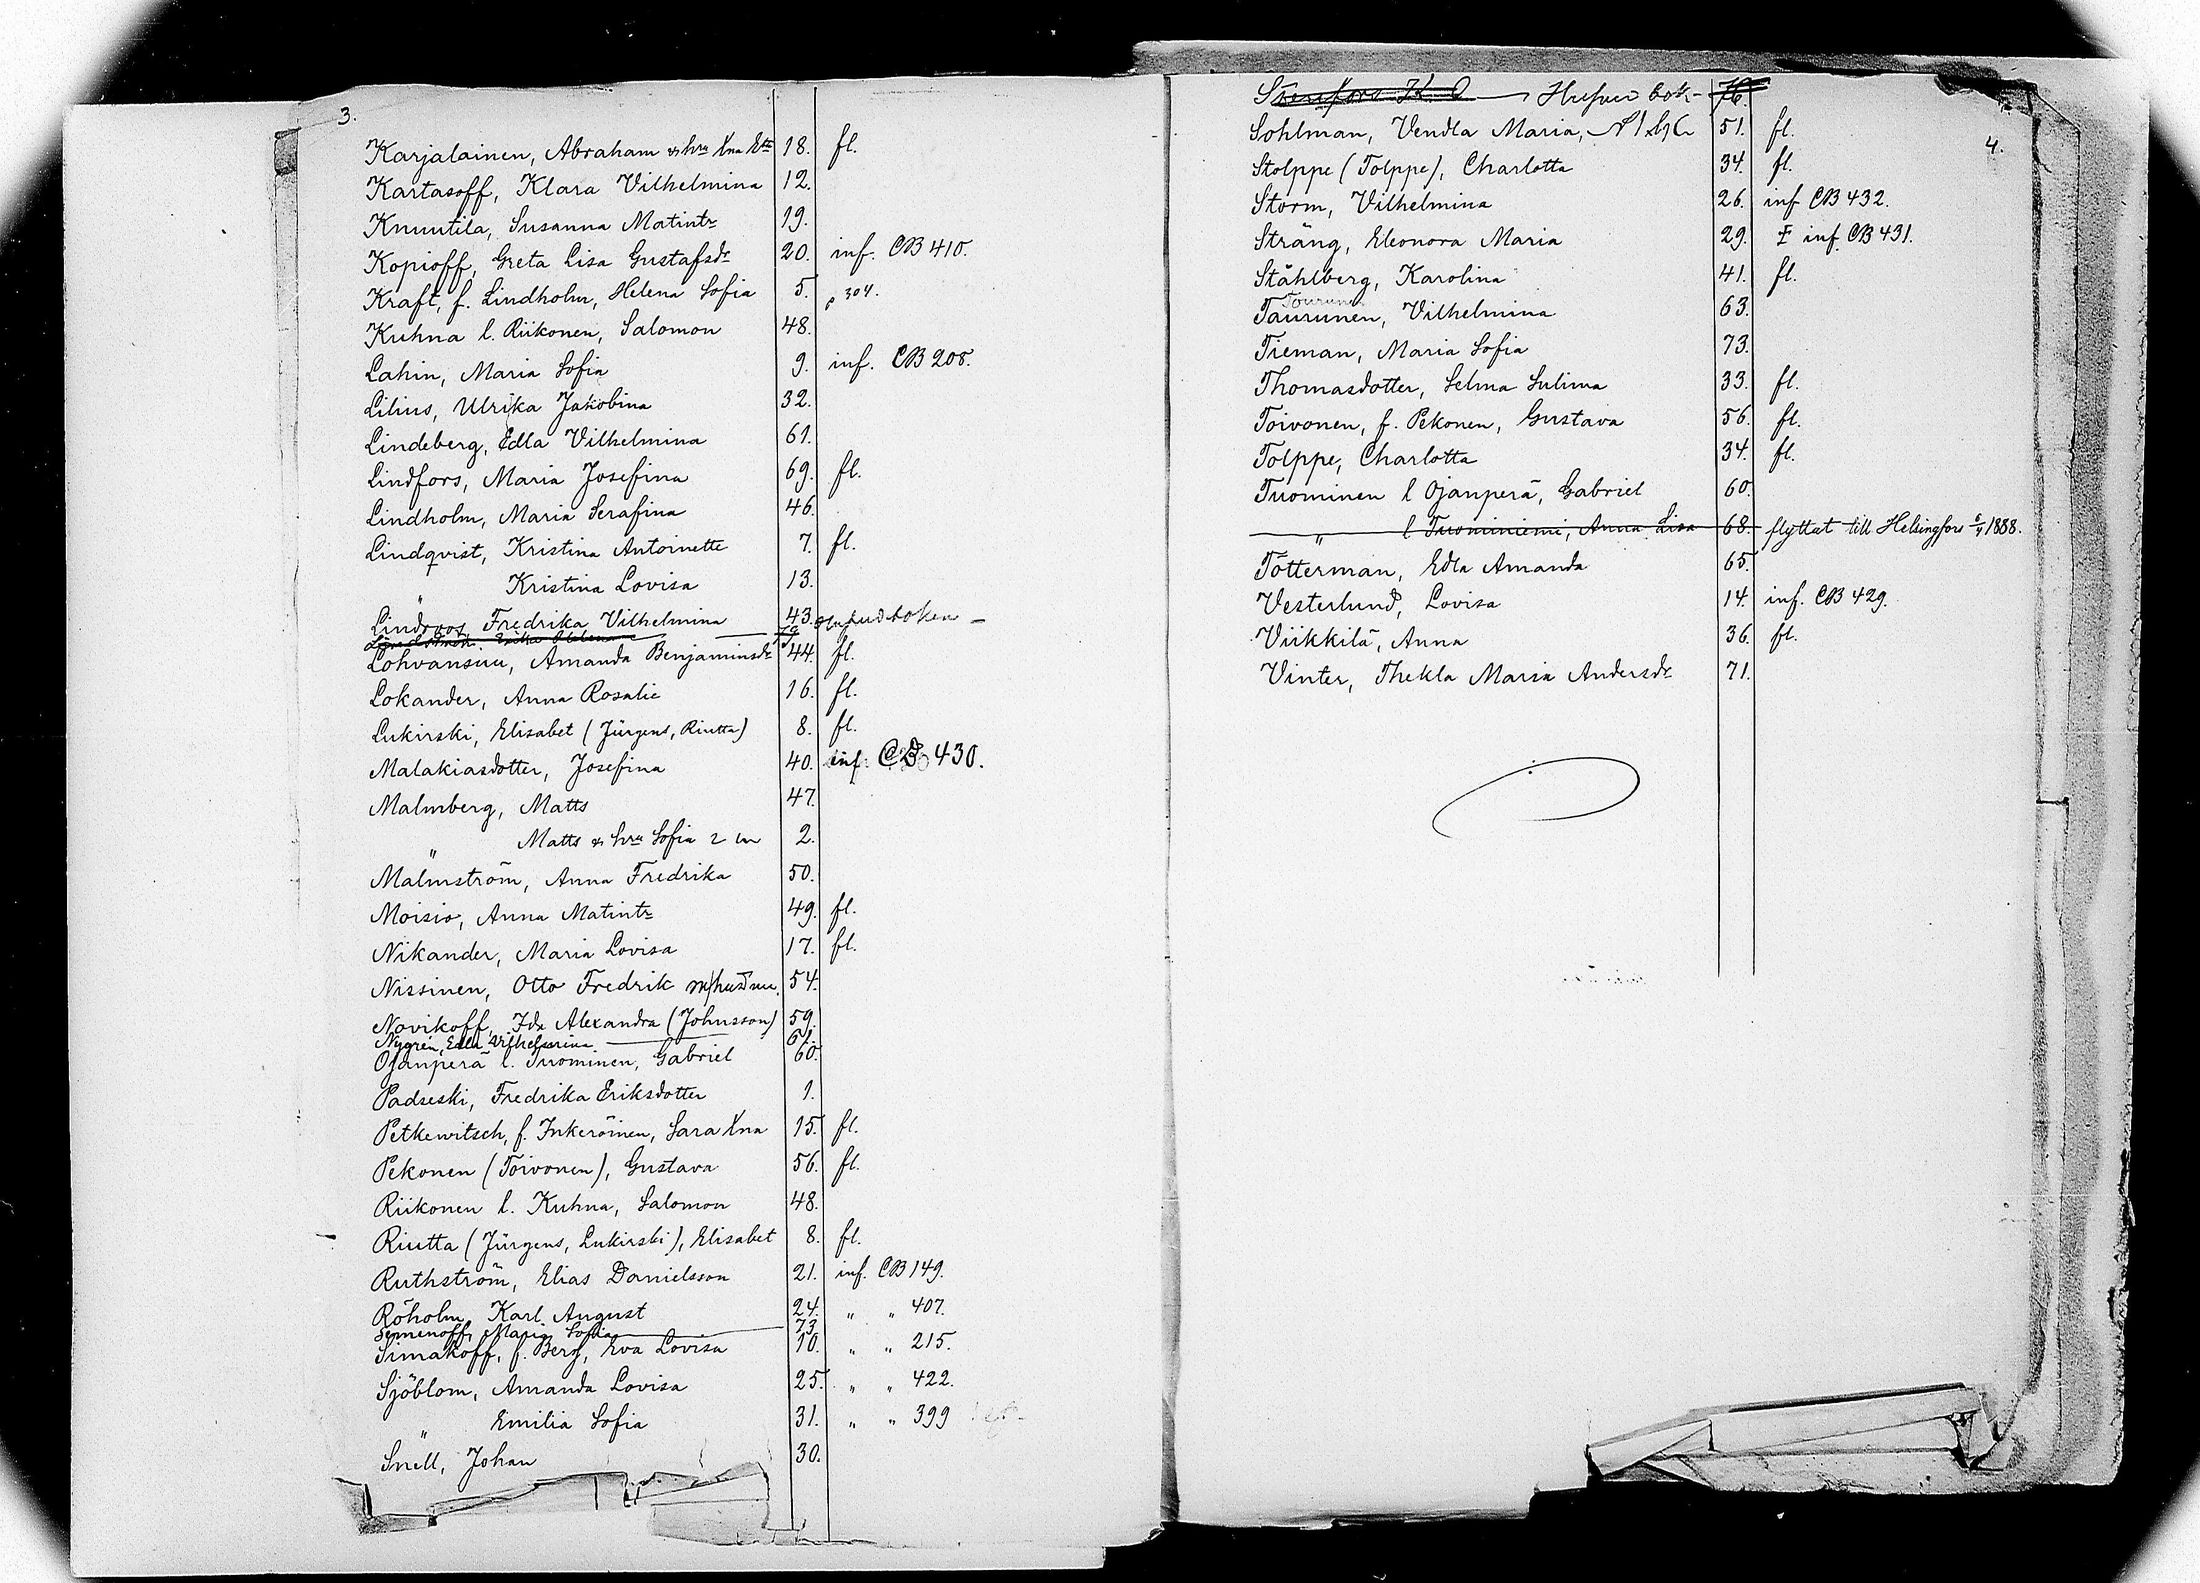 3.
Karjalainen, Abraham & hru Xna 18. fl.
Kartasoff, Klara Vilhelmina 12.
Knuutila, Susanna Matintr 19.
Kopioff, Greta Lisa Gustafsdr 20. inf. CB 410.
Kraft, f. Lindholm, Helena Sofia 5. p 304.
Kuhna l. Riikonen, Salomon 48.
Lahin, Maria Sofia 9. inf. CB 208.
Lilius, Ulrika Jakobina 32.
Lindeberg, Edla Vilhelmina 61.
Lindfors, Maria Josefina 69. fl.
Lindholm, Maria Serafina 46.
Lindqvist, Kristina Antoinette 7. fl.
" Kristina Lovisa 13.
Lindroos, Fredrika Vilhelmina 43.
Lohvansuu, Amanda Benjaminsdr 44. fl.
Lokander, Anna Rosalie 16. fl.
Lukirski, Elisabet (Jürgens, Riutta) 8. fl.
Malakiasdotter, Josefina 40. inf. CB 430.
Malmberg, Matts 47.
" Matts & hru Sofia 2. 
Malmström, Anna Fredrika 50.
Moisio, Anna Matintr 49. fl.
Nikander, Maria Lovisa 17. fl.
Nissinen, Otto Fredrik 54.
Novikoff, Ida Alexandra (Johnsson) 59.
Nygrén, Edla Vilhelmina 61.
Ojanperä l. Tuominen, Gabriel 60.
Padseski, Fredrika Eriksdotter 1.
Petkewitsch, f. Inkeröinen, Sara Xna 15. fl.
Pekonen (Toivonen), Gustava 56. fl.
Riikonen l. Kuhna, Salomon 48.
Riutta (Jürgens, Lukirski), Elisabet 8. fl.
Ruthström, Elias Danielsson 21. inf. CB 149.
Röholm, Karl August 24. " " 407.
Semenoff, Maria Sofia 73
Simakoff, f. Berg, Eva Lovisa 10. " " 215.
Sjöblom, Amanda Lovisa 25. " " 422.
" Emilia Sofia 31. " " 399
Snell, Johan 30.
4.
Stenfors K. O
Sohlman, Vendla Maria, 51. fl.
Stolppe (Tolppe), Charlotta 34. fl.
Storm, Vilhelmina 26. inf CB 432.
Sträng, Eleonora Maria 29. inf. CB 431.
Ståhlberg, Karolina 41. fl.
Tourunen
Taurunen, Vilhelmina 63.
Tieman, Maria Sofia 73.
Thomasdotter, Selma Sulima 33. fl.
Toivonen, f. Pekonen, Gustava 56. fl.
Tolppe, Charlotta 34. fl.
Tuominen l Ojanperä, Gabriel 60.
" l Tuominiemi, Anna Lisa 68. flyttat till Helsingfors 1888.
Tötterman, Edla Amanda 65.
Vesterlund, Lovisa 14. inf. CB 429.
Viikkilä, Anna 36. fl.
Vinter, Thekla Maria Andersdr 71.